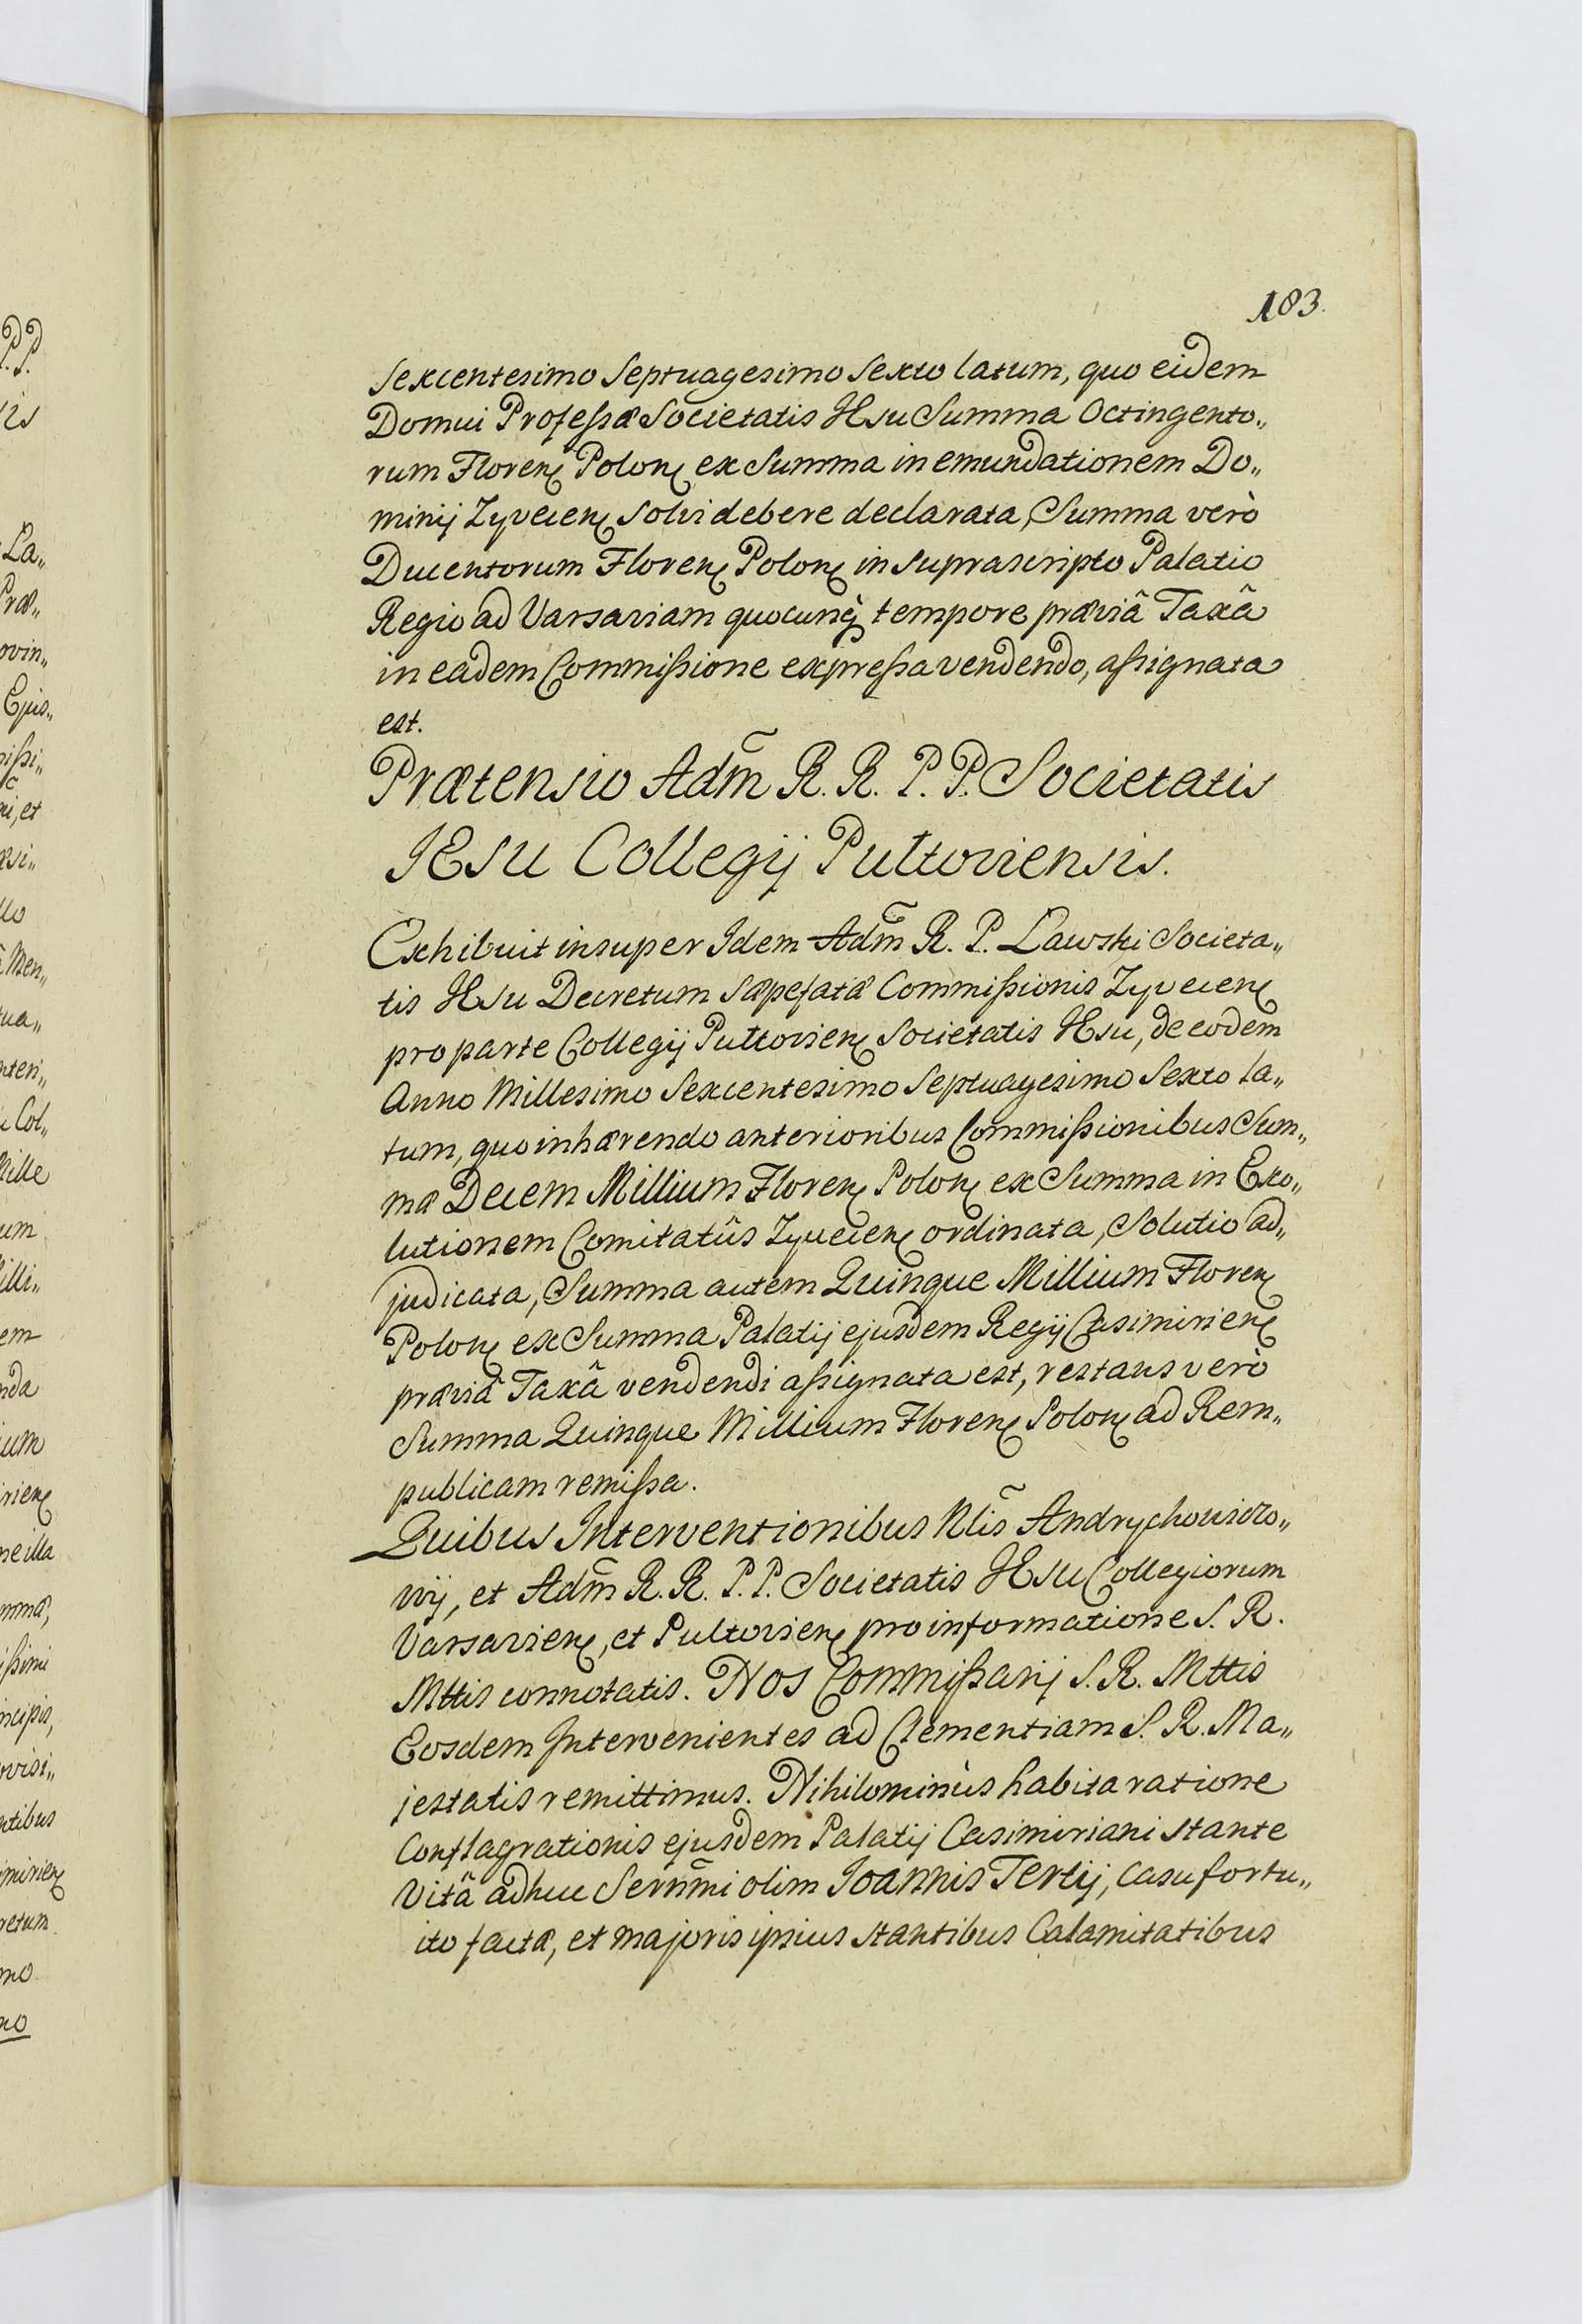 183.
sexcentesimo Septuagesimo Sexto latum, quo eidem
Domui Professæ Societatis IEsu Summa Octingento„
rum Floren Polon ex Summa in emundationem Do„
minij Zyvecien solvi debere declarata, Summa verò
Ducentorum Floren Polon in suprascripto Palatio
Regio ad Varsaviam quocunq̀ tempore præviâ Taxâ
in eadem Commissione expressa vendendo, assignata
est.
Prætensio Adm̃ R. R. P. P. Societatis
IEsu Collegij Pultoviensis.
Exhibuit insuper Idem Adm̃ R. P. Lawski Societa„
tis IEsu Decretum sæpefatæ Commissionis Zyvecien
pro parte Collegij Pultovien Societatis IEsu, de eodem
Anno Millesimo Sexcentesimo Septuagesimo Sexto la„
tum, quo inhærendo anterioribus Commissionibus Sum„
mæ Decem Millium Floren Polon ex Summa in Exo„
lutionem Comitatûs Zyvecien ordinata, Solutio ad„
judicata, Summa autem Quinque Millium Floren
Polon ex Summa Palatij ejusdem Regij Casimirien
præviâ Taxâ vendendi assignata est, restans verò
Summa Quinque Millium Floren Polon ad Rem„
publicam remissa.
Quibus Interventionibus Nlis̃ Andrychowiczo„
wij, et Adm̃ R. R. P. P. Societatis IEsu Collegiorum
Varsavien, et Pultovien pro informatione S. R.
Mttis connotatis. Nos Commissarij S. R. Mttis
Eosdem Intervenientes ad Clementiam S. R. Ma„
jestatis remittimus. Nihilominùs habita ratione
Conflagrationis ejusdem Palatij Casimiriani stante
Vitâ adhuc Sernm̃i olim Ioannis Tertij, casu fortu„
ito factæ, et majoris ipsius stantibus Calamitatibus